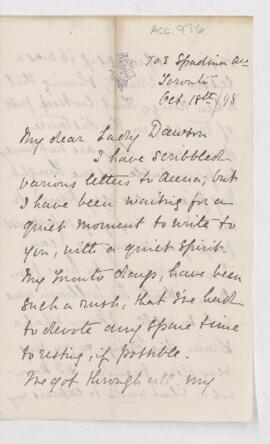 ACC. 926
703 Spadina Ave
Toronto
Oct. 18th/98
My dear Lady Dawson
I have scribbled
various letters to Anna; but
I have been waiting for a
quiet moment to write to
you, with a quiet spirit.
My Toronto days, have been
such a rush, that I've had
to devote any spare time
to resting, if possible.
I've got through all my